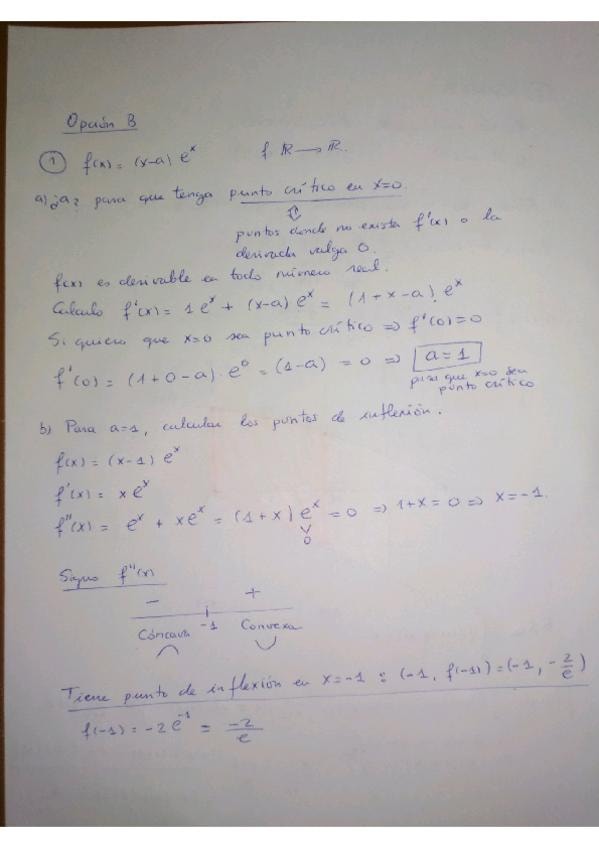 Opción B
① f(x) = (x-a) e^x    f: ℝ → ℝ.
a) ¿a? para que tenga punto crítico en x=0.
⇕
puntos donde no exista f'(x) o la
derivada valga 0.
f(x) es derivable en todo número real.
Calculo f'(x) = 1 e^x + (x-a) e^x = (1+x-a) e^x
Si quiero que x=0 sea punto crítico ⇒ f'(0)=0
f'(0) = (1+0-a) · e^0 = (1-a) = 0 ⇒ a=1
para que x=0 sea
punto crítico
b) Para a=1, calcular los puntos de inflexión.
f(x) = (x-1) e^x
f'(x) = x e^x
f''(x) = e^x + x e^x = (1+x) e^x = 0 ⇒ 1+x = 0 ⇒ x=-1.
∨
0
Signo f''(x)
−    +
-1
Cóncava    Convexa
Tiene punto de inflexión en x=-1 : (-1, f(-1)) = (-1, -2/e)
f(-1) = -2 e^-1 = -2/e